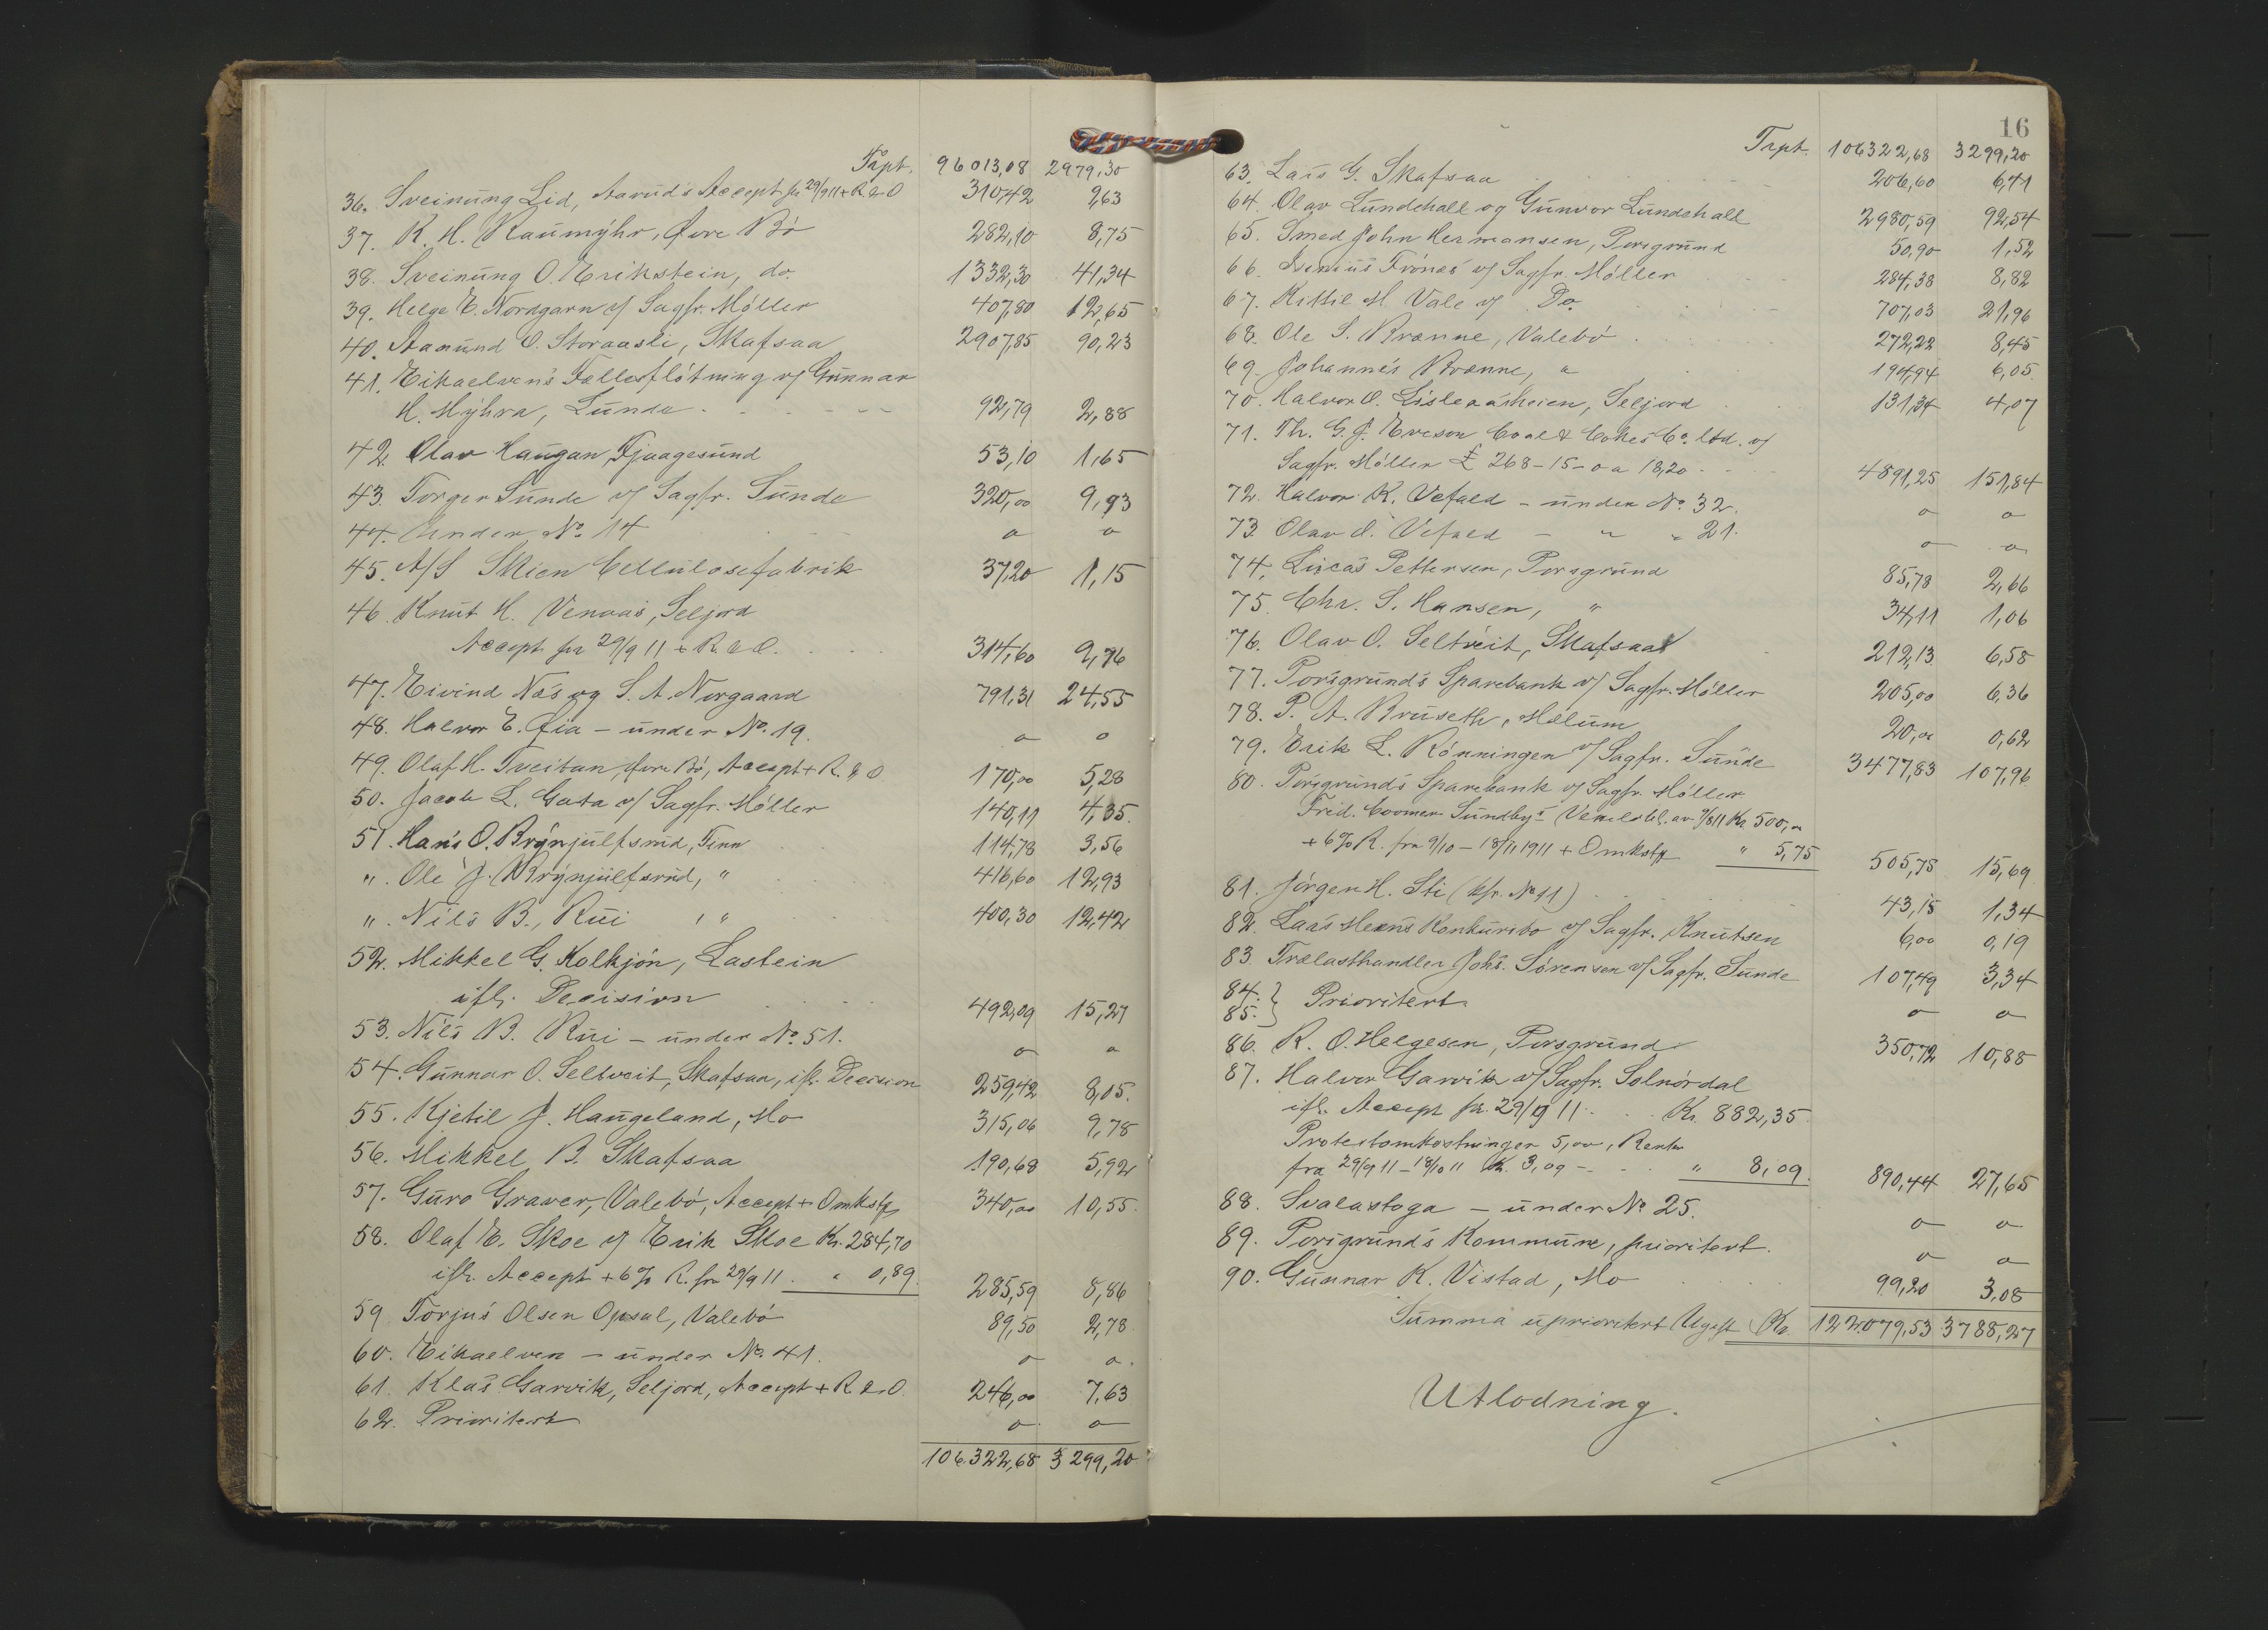 Trpt. 96013,08 2979,30
36. Sveinung Lid, Aamund's Accept fr 29/9 11 + R & O 310,42 9,63
37. K. H. Raumyhr, Øvre Bö 282,10 8,75
38. Sveinung O. Erikstein, do. 1332,30 41,34
39. Helge E. Nordgarn v/ Sagfr. Möller 407,80 12,65
40. Aamund O. Storaasli, Skafsaa 2907,85 90,23
41. Eikaelven's Fællesflötning v/ Gunnar
H. Myhra, Lunde 92,79 2,88
42. Olav Haugan, Fjaagesund 53,10 1,65
43. Torger Sunde v/ Sagfr. Sunde 320,00 9,93
44. Under No. 14 o o
45. A/S Skien Cellulosefabrik 37,20 1,15
46. Knut H. Venaas, Seljord
Accept fra 29/9 11 + R. & O. 314,60 9,76
47. Eivind Næs og S. A. Norgaard 791,31 24,55
48. Halvor E. Øia – under No. 19. o o
49. Olaf H. Tveitan, Øvre Bö, Accept + R. & O. 170,00 5,28
50. Jacob L. Gata v/ Sagfr. Möller 140,11 4,35
51. Hans O. Brynjulfsrud, Finn 114,78 3,56
" . Ole J. Brynjulfsrud, " 416,60 12,93
" . Nils B. Rui , " 400,30 12,42
52. Mikkel G. Kolkjön, Lastein
ifl. Decision 492,09 15,27
53. Nils B. Rui – under No. 51. o o
54. Gunnar O. Seltveit, Skafsaa, ifl. Decision 259,42 8,05
55. Kjetil J. Haugeland, Mo 315,06 9,78
56. Mikkel B. Skafsaa 190,68 5,92
57. Guro Graver, Valebö, Accept + Omkstg 340,00 10,55
58. Olaf E. Skoe v/ Erik Skoe Kr. 284,70
ifl. Accept + 6% R. fra 29/9 11 " 0,89 285,59 8,86
59. Torjus Olsen Opsal, Valebö 89,50 2,78
60. Eikaelven – under No. 41. o o
61. Klas Garvik, Seljord, Accept + R. & O. 246,00 7,63
62. Prioritert o o
106322,68 3299,20
16
Trpt. 106322,68 3299,20
63. Lars G. Skafsaa 206,60 6,41
64. Olav Lundehall og Gunvor Lundehall 2980,59 92,54
65. Smed John Hermansen, Porsgrund 50,90 1,52
66. Frönæs v/ Sagfr. Möller 284,38 8,82
67. Kittil M Vale v/ Do. 707,03 21,96
68. Ole S. Brænne, Valebö 272,22 8,45
69. Johannes Brænne, " 194,94 6,05
70. Halvor O. Lisleaasheien, Seljord 131,34 4,07
71. Th. G. J. Eveson Coal & Cokes Co. ltd. v/
Sagfr. Möller £ 268-15-0 a 18,20 4891,25 151,84
72. Halvor K. Vefald – under No. 32. o o
73. Olav O. Vefald – " " 21. o o
74. Lucas Pettersen, Porsgrund 85,78 2,66
75. Chr. S. Hansen, " 34,11 1,06
76. Olav O. Seltveit, Skafsaa 212,13 6,58
77. Porsgrund's Sparebank v/ Sagfr. Möller 205,00 6,36
78. P. A. Bruseth, Melum 20,00 0,62
79. Erik L. Rönningen v/ Sagfr. Sunde 3477,83 107,96
80. Porsgrund's Sparebank v/ Sagfr. Möller
Frid. Coomer Sundbys Vekselobl. av 9/8 11 Kr. 500,00
+ 6% R. fra 9/10 – 18/11 1911 + Omkstg " 5,75 505,75 15,69
81. Jörgen H. Sti (kfr. No 11) 43,15 1,34
82. Laas Moens Konkursbo v/ Sagfr. Knutsen 6,00 0,19
83. Trælasthandler Johs. Sörensen v/ Sagfr. Sunde 107,49 3,34
84. } Prioritert
85. } o o
86. R. O. Helgesen, Porsgrund 350,72 10,88
87. Halvor Garvik v/ Sagfr. Solnördal
ifl. Accept fra 29/9 11 Kr. 882,35
Protestomkostninger 5,00, Rente
fra 29/9 11 – 18/10 11 Kr. 3,09 – " 8,09 890,44 27,65
88. Svalastoga – under No 25. o o
89. Porsgrund's Kommune, prioritert. o o
90. Gunnar K. Vistad, Mo 99,20 3,08
Summa uprioritert Utgift Kr. 122079,53 3788,27
Utlodning.